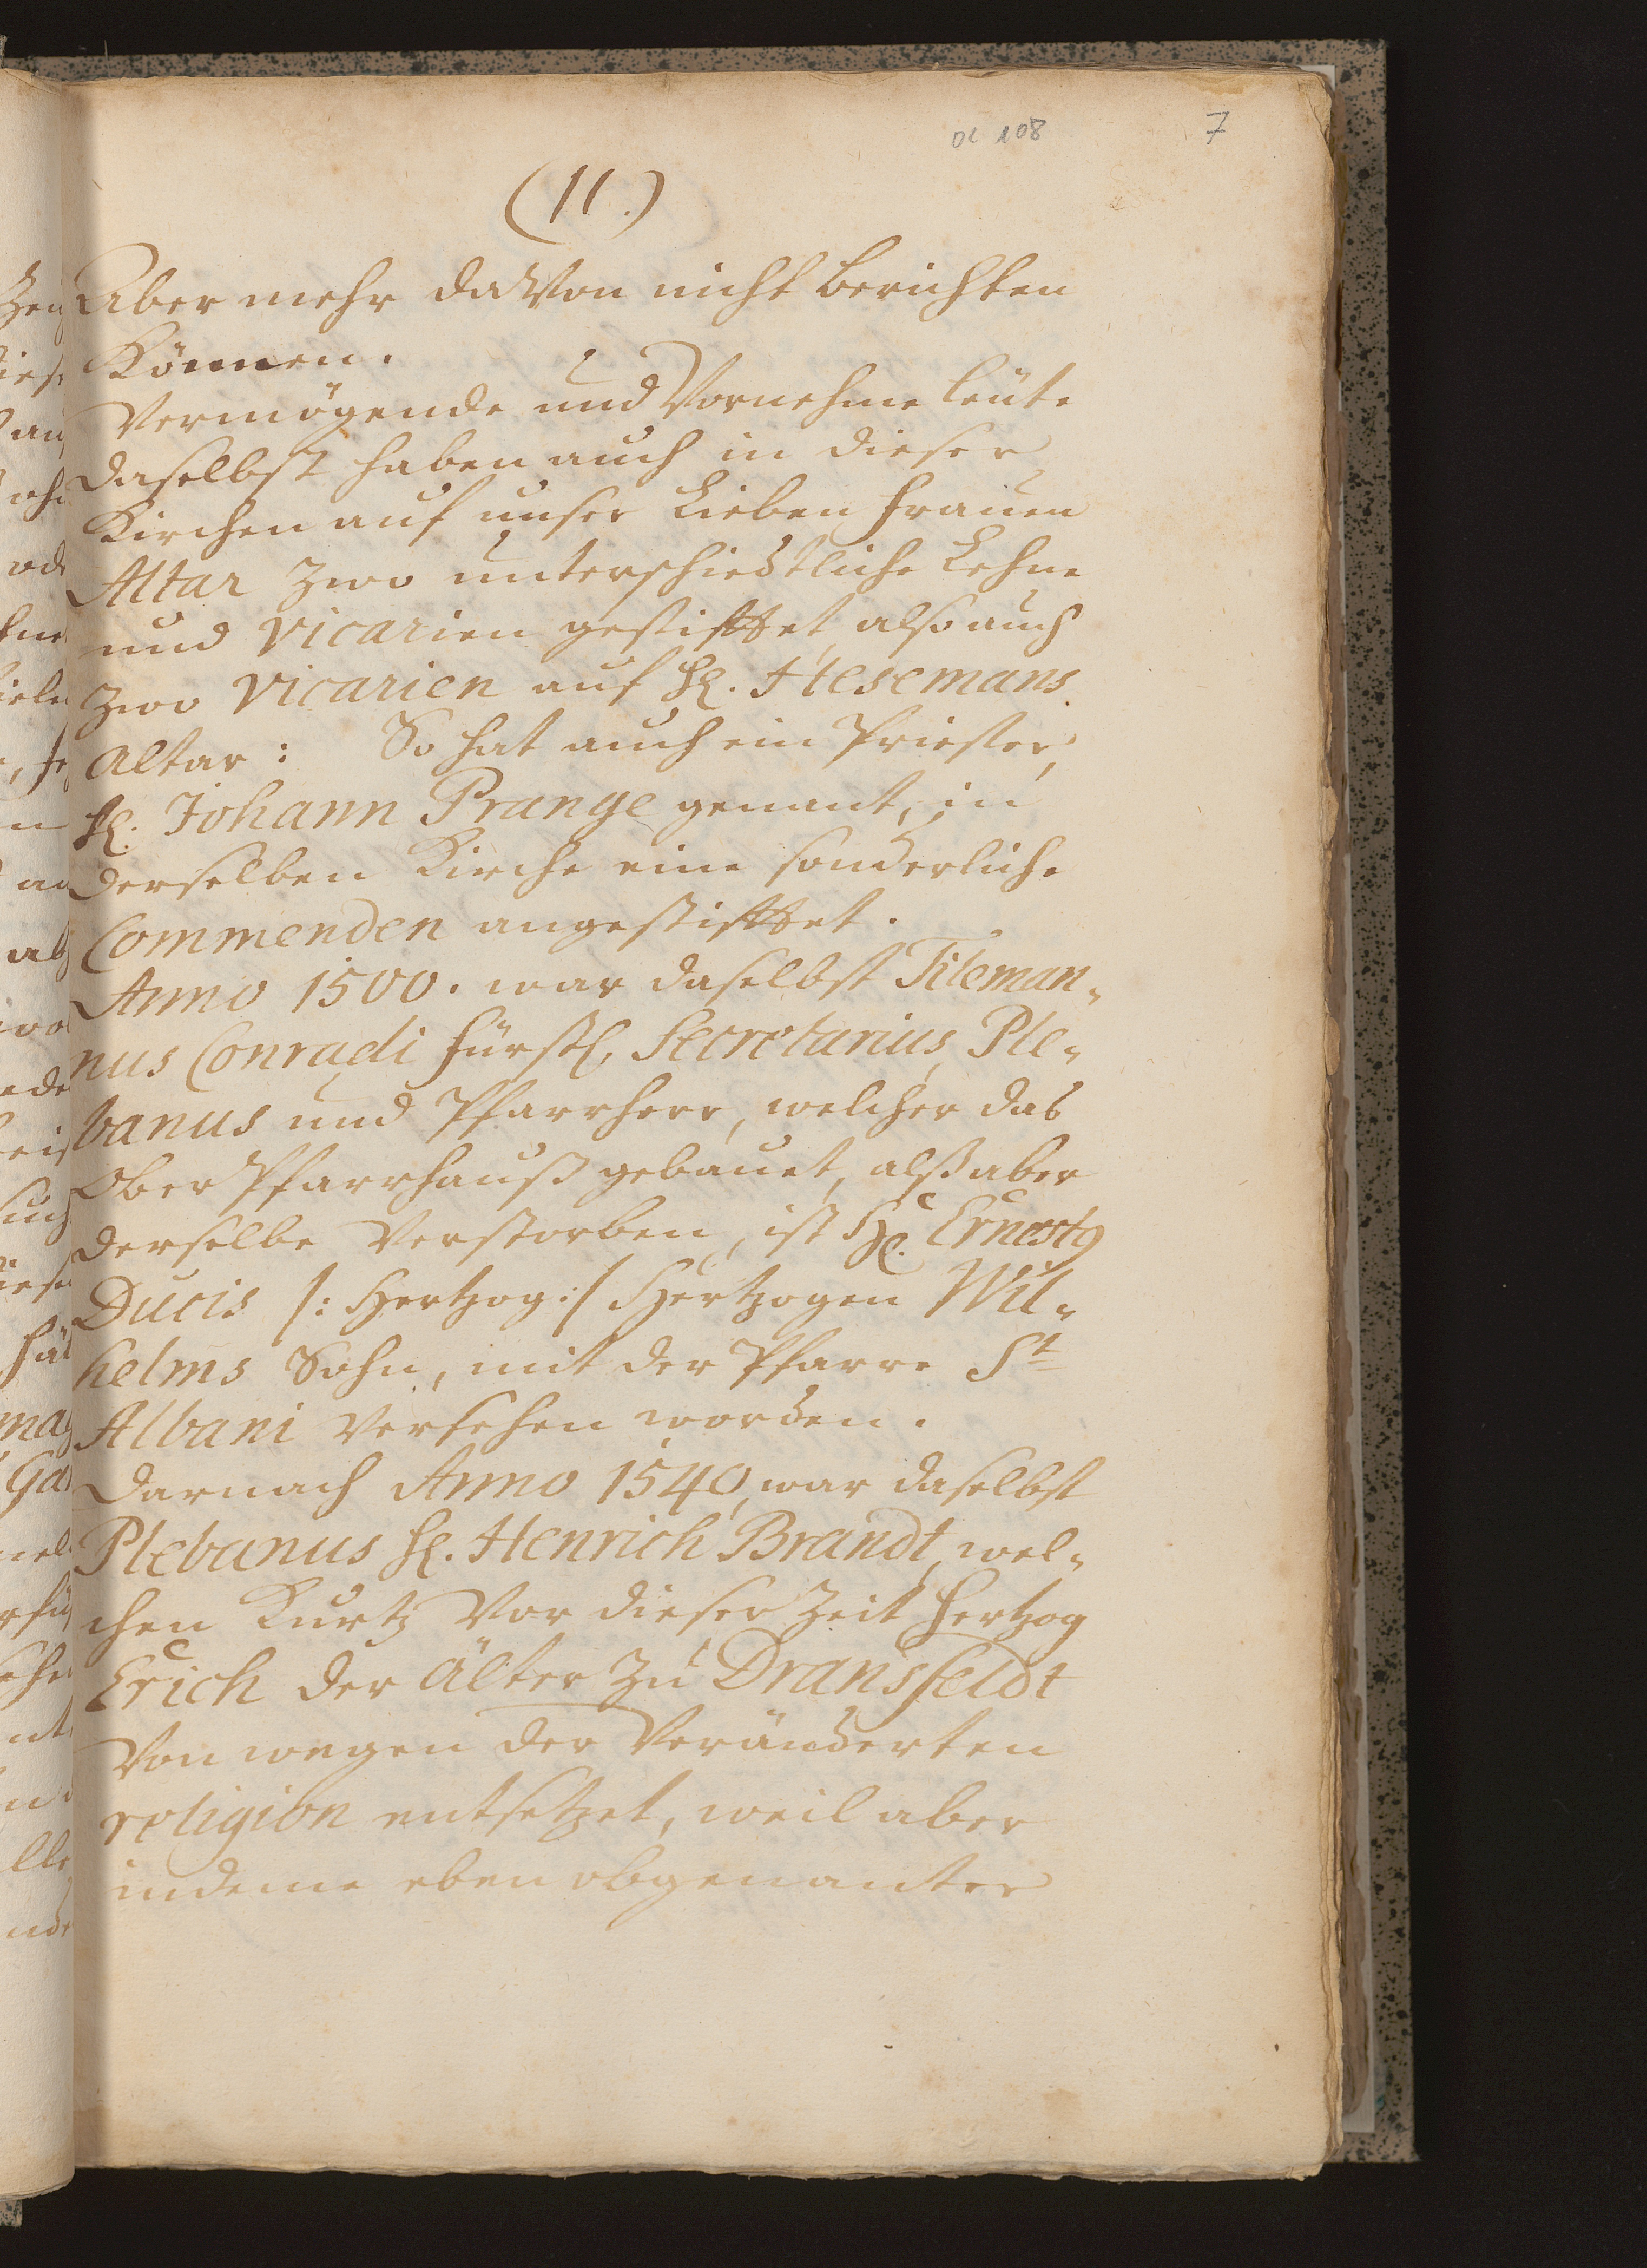 OC 108
7
(11.)
Aber mehr davon nicht berichten
Können.
Vermögende und Vornehme leüte
daselbst haben auch in dieser
Kirchen auf unser Lieben frauen
Altar zwo unterschiedtliche Lehne
und Vicarien gestifftet, also auch
zwo Vicarien auf H. Hesemans
Altar: So hat auch ein Priester,
H. Johann Prange genant, in
derselben Kirche eine sonderliche
Commenden angestifftet.
Anno 1500. war daselbst Tileman-
nus Conradi fürstl. Secretarius, Ple-
banus und Pfarrherr, welcher das
Ober Pfarrhauß gebauet, alß aber
derselbe Verstorben, ist H. Ernesty
Ducis /: Hertzog :/ Hertzogen Wil-
helms Sohn, mit der Pfarre St
Albani versehen worden.
Darnach Anno 1540, war daselbst
Plebanus H. Henrich Brandt, wel-
chen Kurtz Vor dieser Zeit Hertzog
Erich der Älter zu Dransfeldt
Von wegen der Veränderten
religion entsetzet, weil aber
indeme eben obgenanter